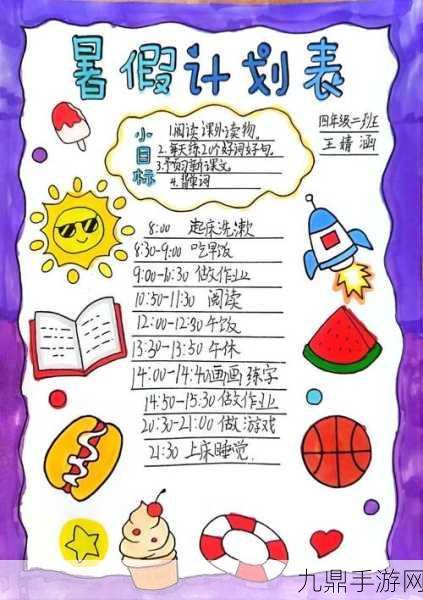 暑假计划表
四年级二班
王婧涵
小目标
1.阅读课外读物。
2.每天练20个好词好句。
3.预习新课文
4.背单词
8:00 起床洗漱
8:30-9:00 吃早饭
9:00-10:30 做作业
10:50-11:30 阅读
12:00-12:30午饭
13:30-13:50午休
14:00-14:40画画练字
14:50-15:30做作业
20:30-21:00做游戏
21:30 上床睡觉.
九鼎手游网